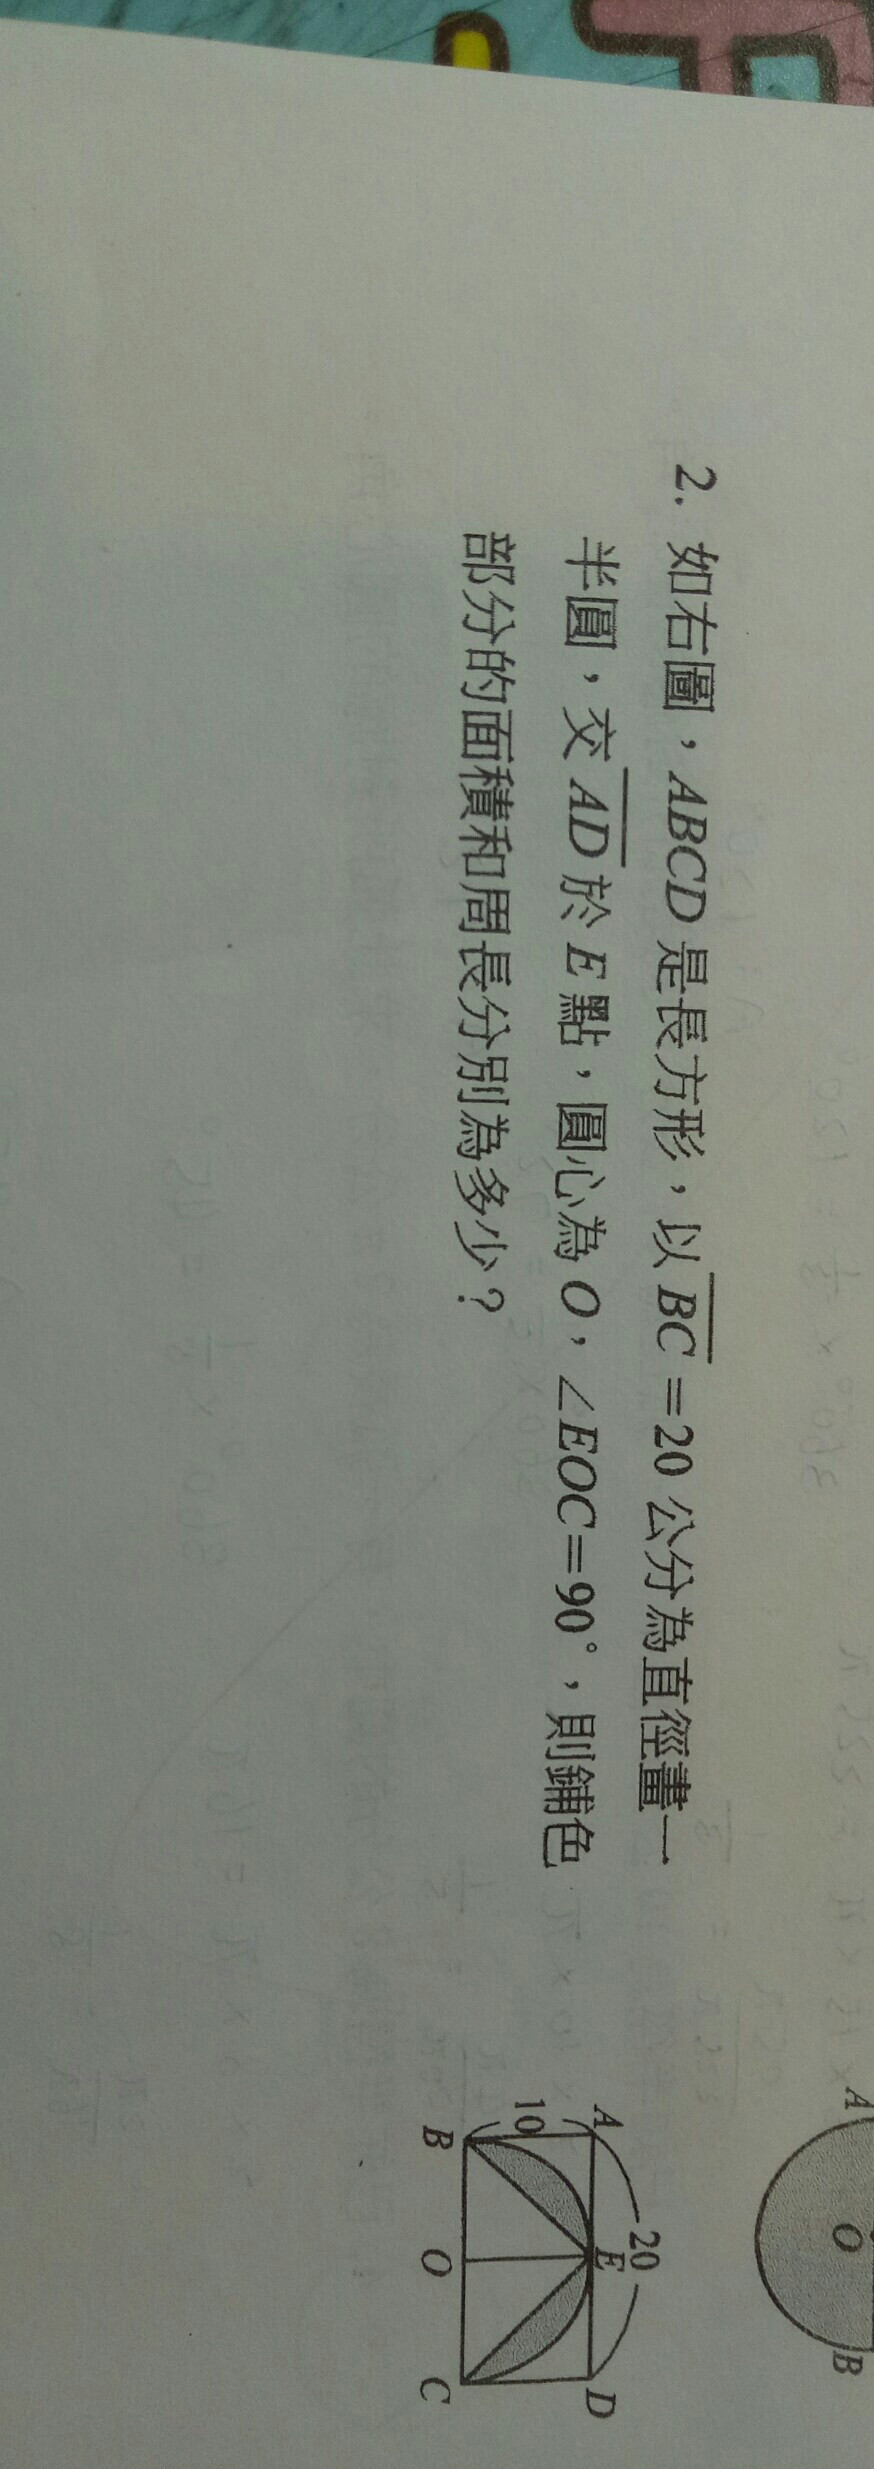 2. 如右圖，ABCD 是長方形，以 BC =20 公分為直徑畫一
半圓，交 AD 於 E 點，圓心為 O，∠EOC=90°，則鋪色
部分的面積和周長分別為多少？
A
O
B
20
A
E
D
10
B
O
C